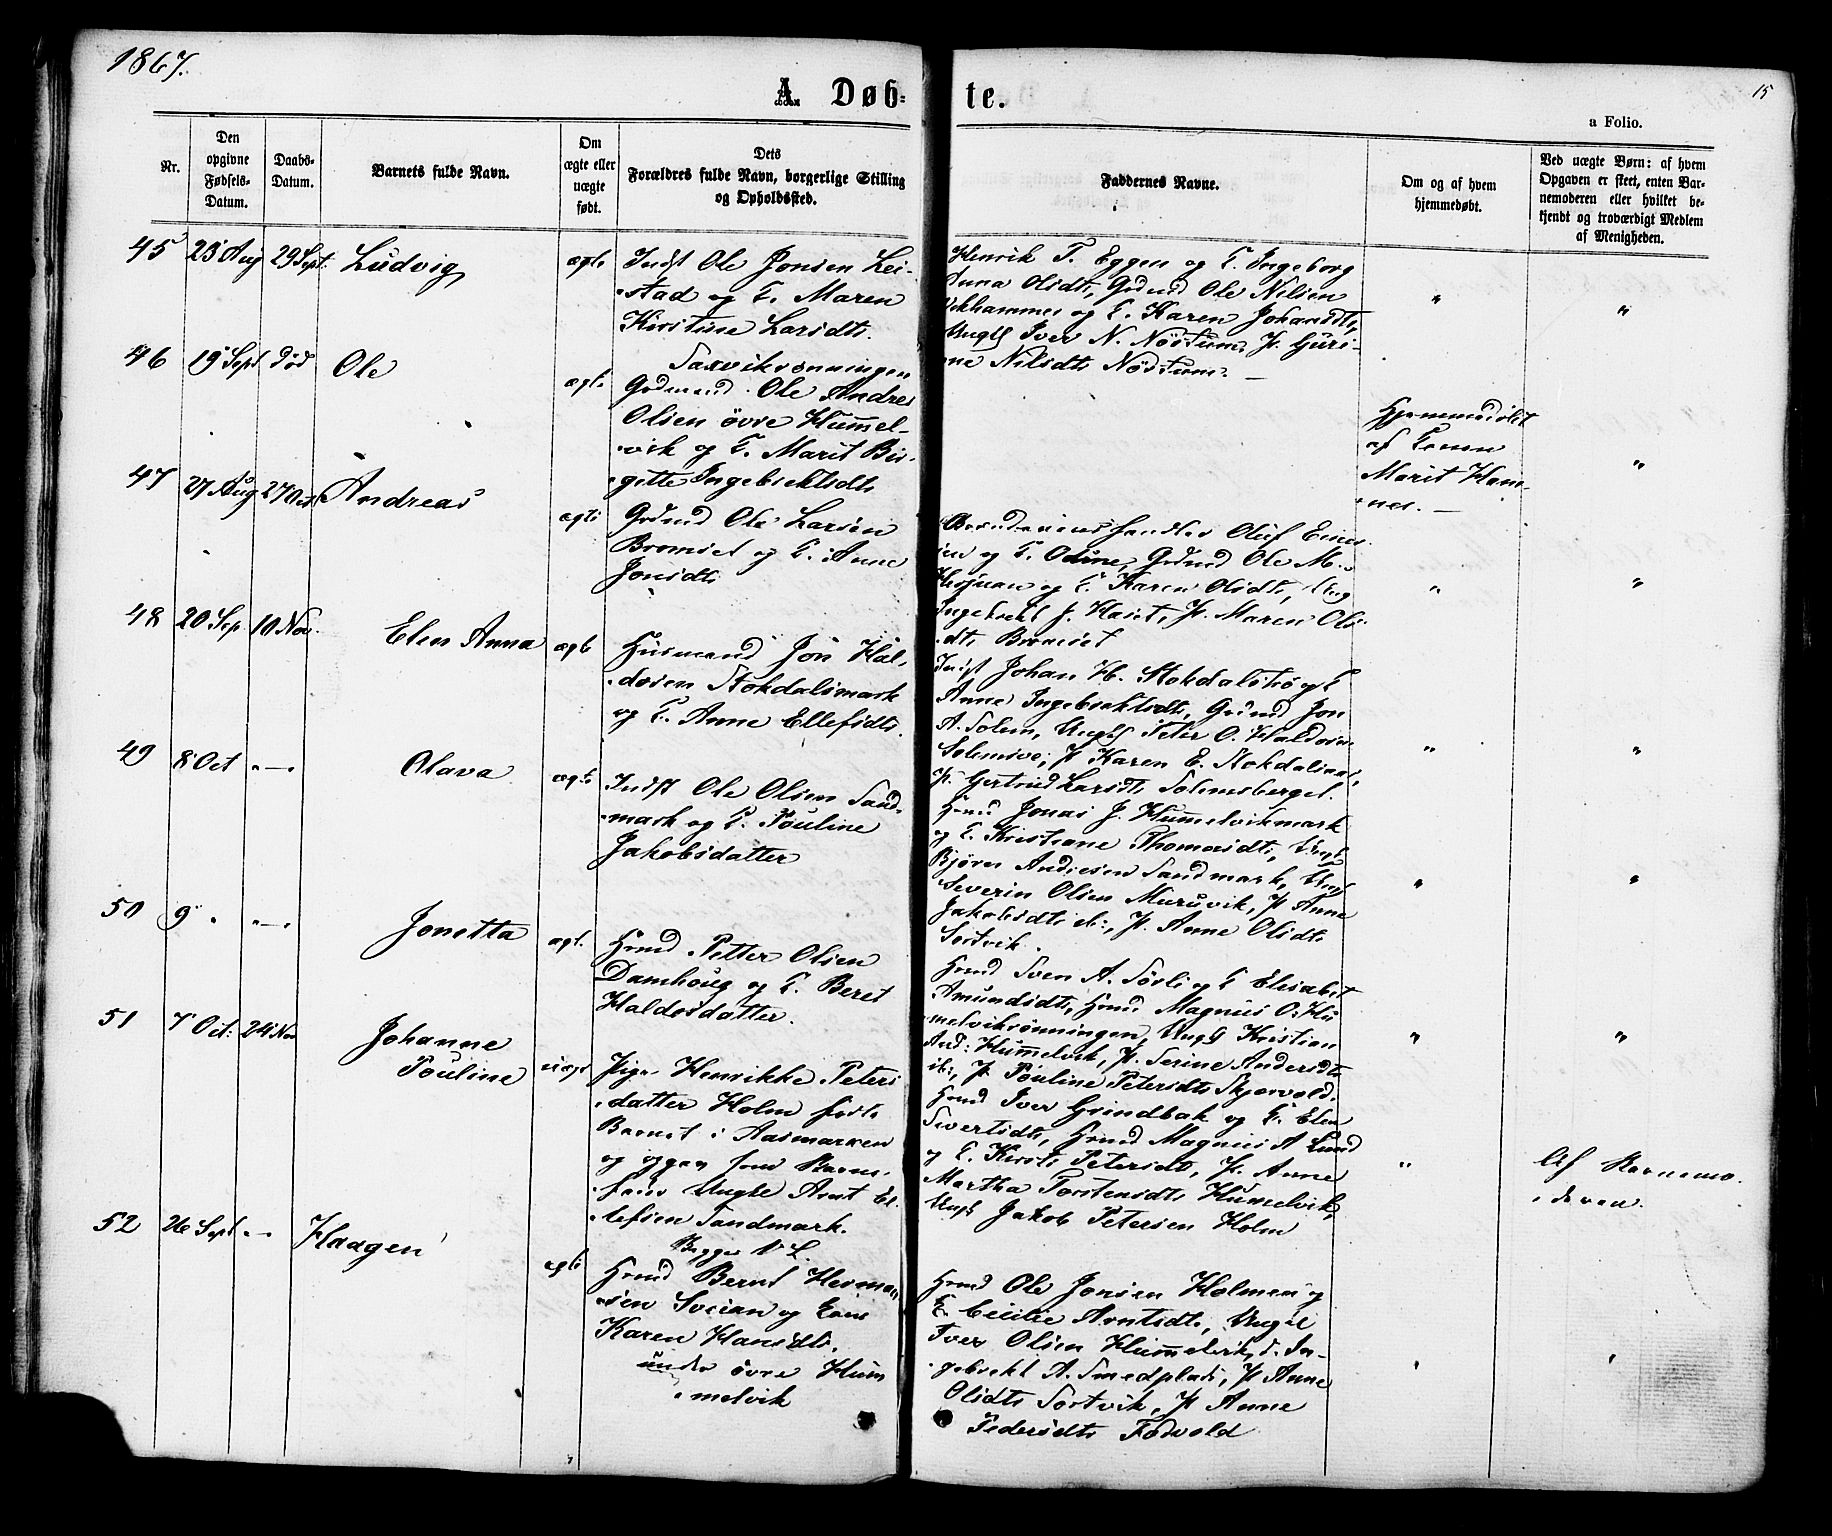 1867.
15
A. Døb=
te.
a Folio.
Nr.
Den opgivne Fødsels-Datum.
Daabs-Datum.
Barnets fulde Navn.
Om ægte eller uægte født.
Dets Forældres fulde Navn, borgerlige Stilling og Opholdssted.
Faddernes Navne.
Om og af hvem hjemmedøbt.
Ved uægte Børn: af hvem Opgaven er skeet, enten Barnemoderen eller hvilket bekjendt og troværdigt Medlem af Menigheden.
45 23 Aug 29 Sept. Ludvig ægte
Indst Ole Jonsen Lei-
stad og E. Maren
Kirstine Larsdtr.
Saxviksonningen
Henrik T. Eggen og E. Ingeborg
Anna Olsdtr, Grdmd Ole Nilsen
Vikhammer og E. Karen Johansdtr,
Ungk Iver N. Nöstum, P. Guri-
ne Nilsdtr Nöstum. —
" "
46 19 Sept død Ole ægte
Grdmand Ole Andreas
Olsen övre Hummel-
vik og E. Marit Bir-
gitte Ingebrektsdtr
Hjemmedöbt
af Konen
Marit Ham-
nes. —
"
47 27 Aug 27 Oct Andreas ægte
Grdmd Ole Larsen
Bromset og E. Anne
Jonsdtr
Brændevinshandler Oluf Einer-
sen og E. Odine, Grdmd Ole M.
Hesjuan og E. Karen Olsdtr, Ung
Ingebrekt J. Haset, P. Maren Ols-
dtr Bromset
" "
48 20 Sep 10 Nov. Elen Anna ægte
Husmand Jon Hal-
dosen Stokdalsmark
og E. Anne Ellefsdtr.
Indst Johan H. Stokdalströ og E
Anne Ingebrektsdtr, Grdmd Jon
A. Solem, Ungk Peter O. Haldosen
Solemsve, P. Karen E. Stokdalsaa,
P. Gertrud Larsdtr Solemsberget.
" "
49 8 Oct " — " Olava ægte
Indst Ole Olsen Sand-
mark og E. Pouline
Jakobsdatter
Hmd Jonas J. Hummelvikmark
og E. Kristiane Thomasdtr, Ungk
Björn Andresen Sandmark, Ungk
Severin Olsen Muruvik, P. Anne
Jakobsdtr ib:, P. Anne Olsdtr
Sortvik.
" "
50 9 " " — " Jonetta ægt.
Hmd Petter Olsen
Damhoug og E. Beret
Haldosdatter.
Hmd Sven A. Sörli og E Elisabet
Amundsdtr, Hmd Magnus O. Hu-
melviksönningen, Ungk Kristian
And: Hummelvik, P. Serine Andersdtr
ib:, P. Pouline Petersdtr Skjervold.
" "
51 7 Oct: 24 Nov Johanne
Pouline uægt
Pige Henrikke Peters-
datter Holm födte
Barnet i Aasmarken
og opgav som Barne-
fader Ungke Arnt El-
lefsen Sandmark.
Begges 1 L.
Hmd Iver Grindbak og E. Elen
Sivertsdtr, Hmd Magnus A Lund
og E. Kirsti Petersdtr, P. Anne
Martha Torstensdtr Humelvik,
Ungk Jakob Petersen Holm
"
Af Barnemo-
deren.
52 26 Sept " — Haagen ægte
Hmd Bernt Herman-
sen Sveian og Kone
Karen Hansdtr.
under övre Hum
melvik
Hmd Ole Jonsen Holmen og
E. Cecilie Arntsdtr, Ungk
Iver Olsen Hummelvik, d. In-
gebrekt A. Smedplads, P. Anne
Olsdtr Sortvik, P. Anne
Pedersdtr Forvold
" "